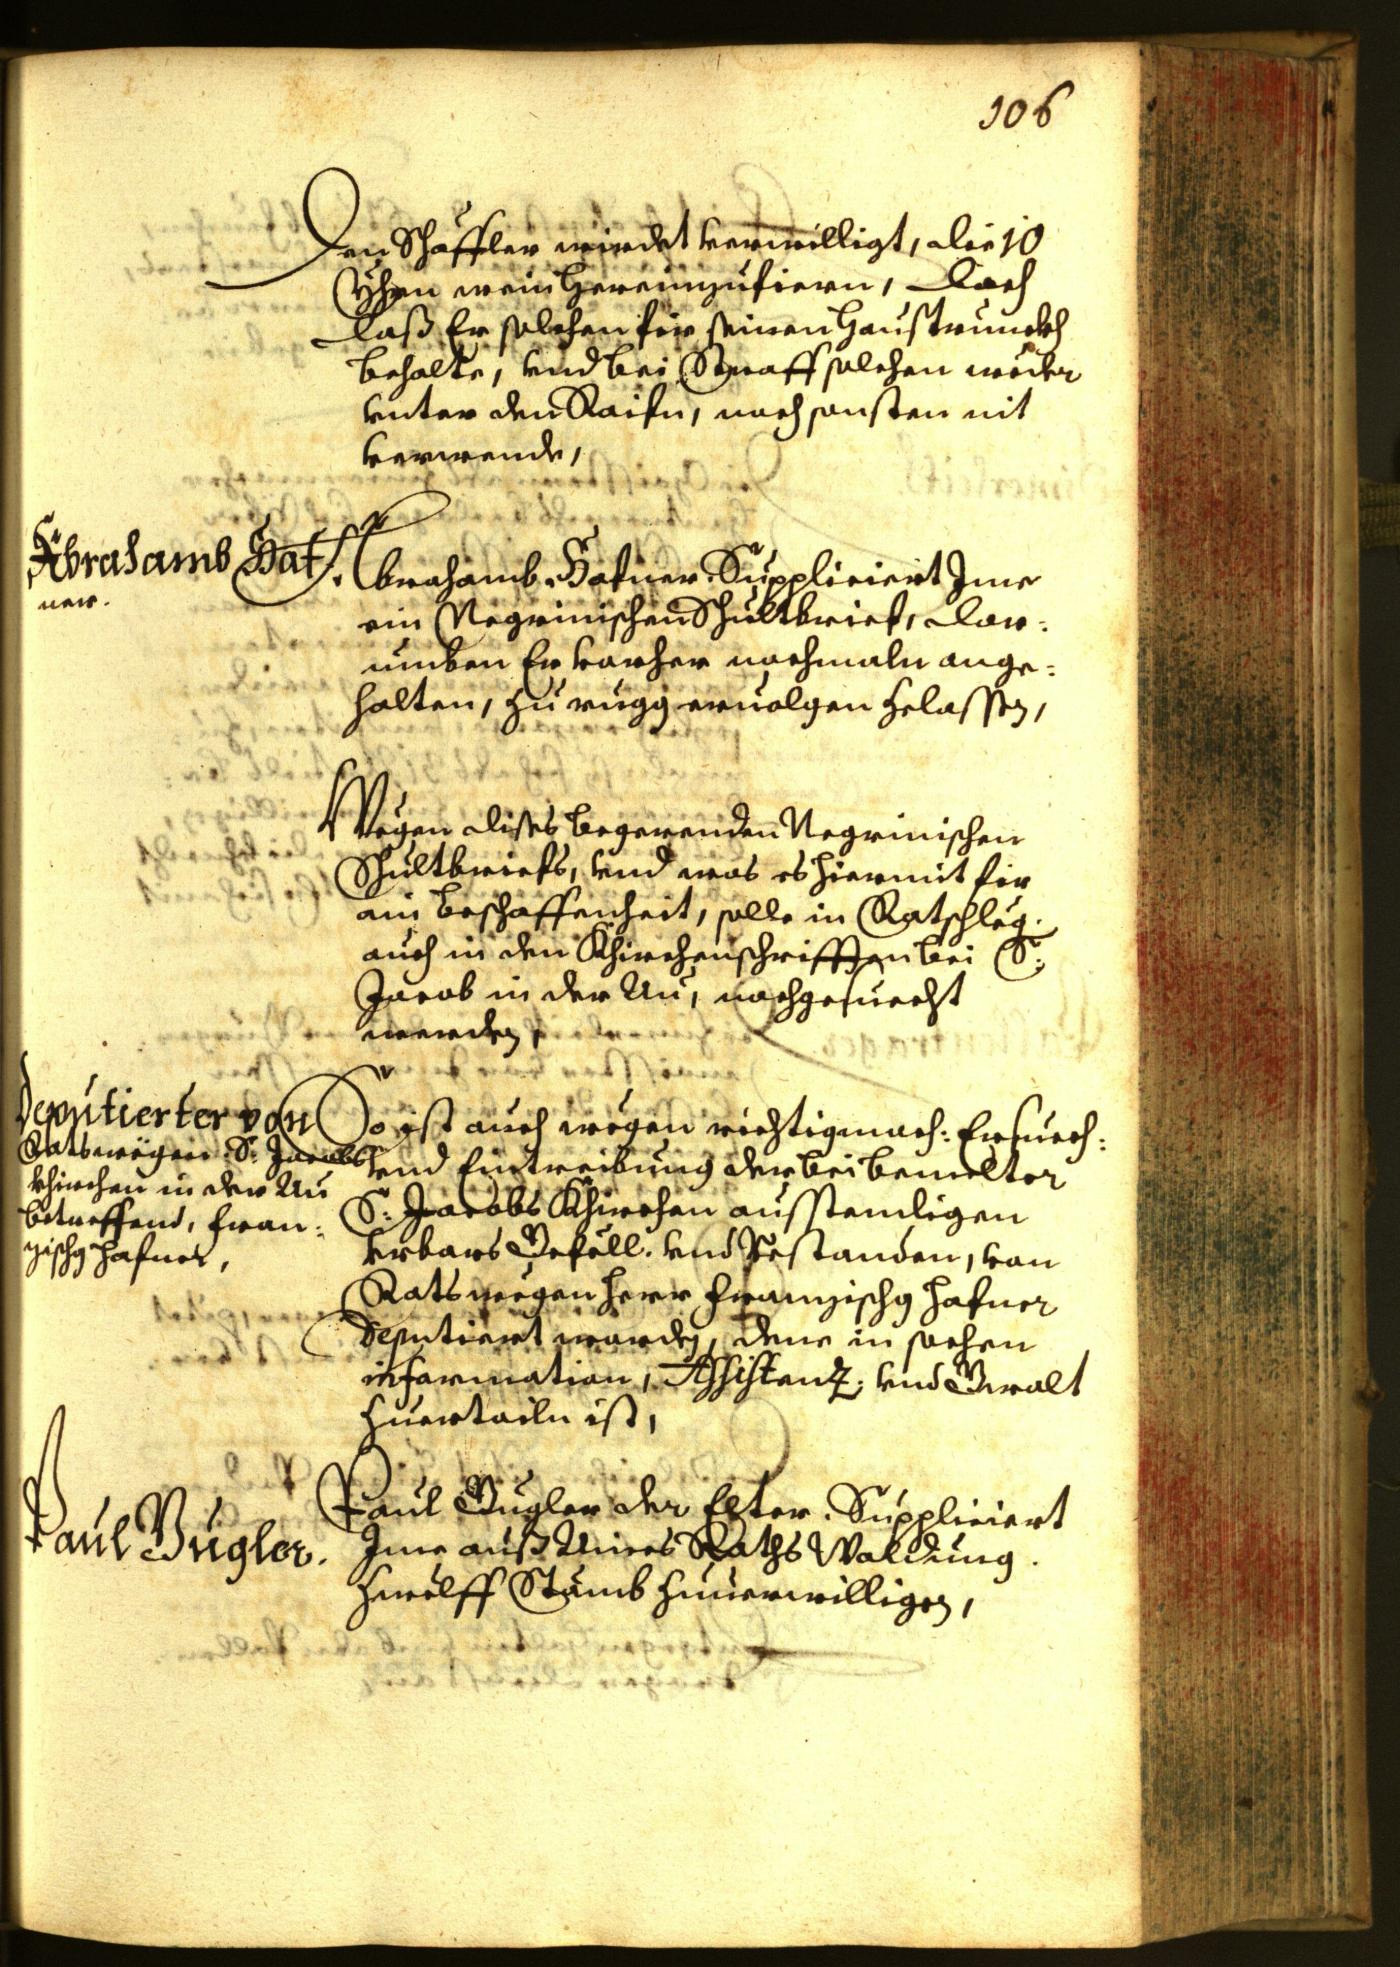 106
Den Schäffler wirdet verwilligt, die 10
Yhrn wein hereinzufiern, doch
das Er solchen für seinen Haustrunckh
behalte, vnd bei Straff solchen weder
vnter den Raifn, noch sonsten nit
verwende,
Abrahamb Haf,
ner.
Abrahamb Hafner Suppliciert Ime
ein Negrinischen Schultbrief, dar:
umben Er vorher nochmaln ange:
halten, zu rugg eruolgen zelassen,
Wegen dises begerenden Negrinischen
Schultbriefs, vnd was es hiermit für
ain beschaffenheit, solle in Ratschleg.
auch in den Khirchenschrifften bei S:
Jacob in der Au, nachgesuecht
werden,
Deputierter von
Rats wegen S: Jacobs
khirchen in der Au
betreffend, Fran:
zischg Hafner,
So ist auch wegen richtigmach: Ersuech:
vnd Eintreibung der bei bemelter
S: Jacobs Khirchen ausstendigen
vrbars Gefell. vnd Restanden, von
Rats wegen Herr Franzischg Hafner
Deputiert worden, deme in sachen
information, Assistenz: vnd Gwalt
zuertailn ist,
Paul Gugler.
Paul Gugler der Elter Suppliciert
Ime auß Aines Raths Waldung.
zwelff Stamb zuuerwilligen,